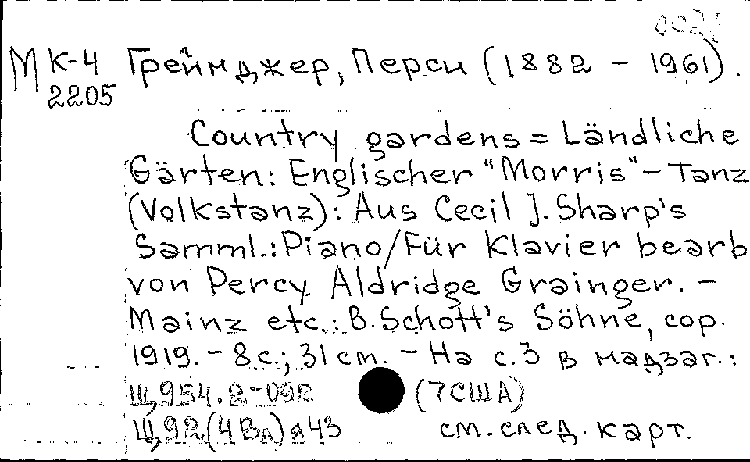 МК-4 Грейнджер, Перси (1882 - 1961).
2205
Country gardens = Ländliche
Gärten: Englischer "Morris" - Tanz
(Volkstanz): Aus Cecil J. Sharp's
Samml.: Piano/Für Klavier bearb
von Percy Aldridge Grainger. -
Mainz etc.: B. Schott's Söhne, cop.
1919. - 8 с.; 31 cm. - На с. 3 в надзаг.:
Щ954.2-092 (7США)
Щ92(4Вл)я43 см. след. карт.